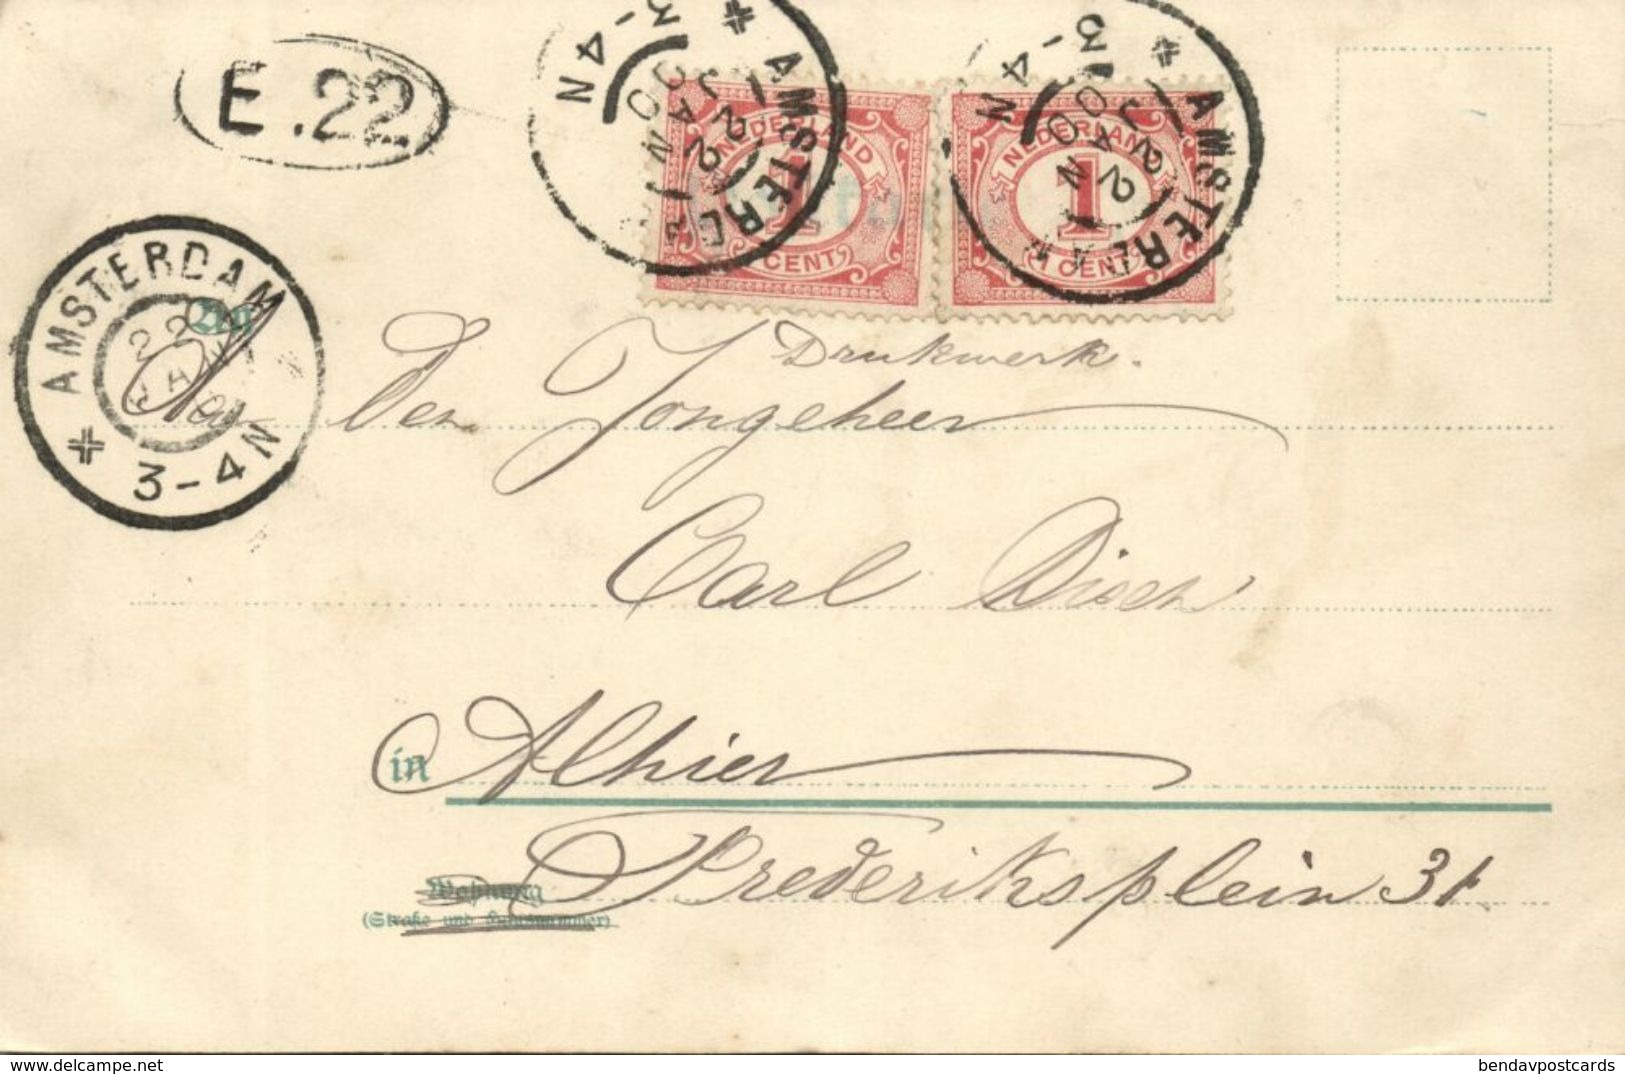 E.22
AMSTERDAM
3-4N
AMSTERD
22 JAN
3-4N
NEDERLAND
1
CENT
AMSTERD
22 JAN
3-4N
NEDERLAND
1
1 CENT
An
Drukwerk.
Den Jongeheer
Carl Disch
in Alhier
Frederiksplein 31.
Wohnung
(Straße und Hausnummer)
bendavpostcards